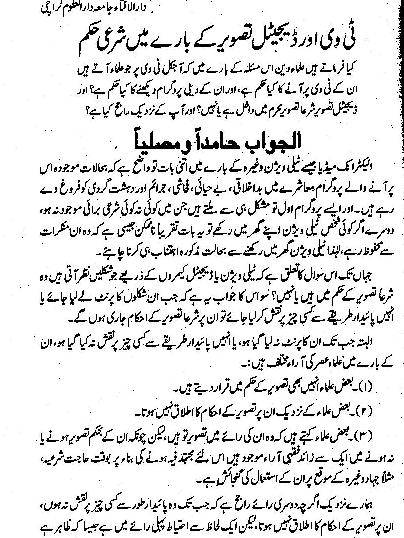 دارالافتاء جامعہ دارالعلوم کراچی
ٹی وی اور ڈیجیٹل تصویر کے بارے میں شرعی حکم
کیا فرماتے ہیں علماء دین اس مسئلہ کے بارے میں کہ آجکل ٹی وی پر جو علماء آتے ہیں
ان کے ٹی وی پر آنے کا کیا حکم ہے، اور ان کے دینی پروگرام دیکھنے کا کیا حکم ہے؟ اور
ڈیجیٹل تصویر شرعاً تصویر محرم میں داخل ہے یا نہیں؟ اور آپ کے نزدیک راجح کیا ہے؟
الجواب حامداً ومصلیاً
الیکٹرانک میڈیا جیسے ٹیلی ویژن وغیرہ کے بارے میں اتنی بات تو واضح ہے کہ بحالات موجودہ اس
پر آنے والے پروگرام معاشرے میں بداخلاقی، بے حیائی، فحاشی، جرائم اور دہشت گردی کو فروغ دے
رہے ہیں۔ اور ایسے پروگرام اول تو مشکل ہی سے ملتے ہیں جن میں کوئی نہ کوئی شرعی برائی موجود نہ ہو،
دوسرے اگر کوئی شخص ٹیلی ویژن اپنے گھر میں رکھے تو یہ بات تقریباً ناممکن جیسی ہے کہ وہ ان منکرات
سے محفوظ رہے، لہٰذا ٹیلی ویژن گھر میں رکھنے سے بحالت مذکورہ اجتناب ہی کرنا چاہئے۔
جہاں تک اس سوال کا تعلق ہے کہ ٹیلی ویژن یا ڈیجیٹل کیمروں کے ذریعے جو شکلیں نظر آتی ہیں وہ
شرعاً تصویر کے حکم میں ہیں یا نہیں؟ سو اس کا جواب یہ ہے کہ جب ان شکلوں کا پرنٹ لے لیا جائے یا
انہیں پائیدار طریقے سے کسی چیز پر نقش کر لیا جائے تو ان پر شرعاً تصویر کے احکام جاری ہوں گے۔
البتہ جب تک ان کا پرنٹ نہ لیا گیا ہو، یا انہیں پائیدار طریقے سے کسی چیز پر نقش نہ کیا گیا ہو، ان
کے بارے میں علماء عصر کی آراء مختلف ہیں:۔
(۱)۔ بعض علماء انہیں بھی تصویر کے حکم میں قرار دیتے ہیں۔
(۲)۔ بعض علماء کے نزدیک ان پر تصویر کے احکام کا اطلاق نہیں ہوتا۔
(۳)۔ بعض علماء کہتے ہیں کہ وہ ان کی رائے میں تصویر تو ہیں، لیکن چونکہ ان کے بحکم تصویر ہونے یا
نہ ہونے میں ایک سے زائد فقہی آراء موجود ہیں اس لئے مجتہد فیہ ہونے کی بناء پر بوقت حاجت شرعیہ، مثلاً
جہاد وغیرہ کے موقع پر ان کے استعمال کی گنجائش ہے۔
ہمارے نزدیک اگرچہ دوسری رائے راجح ہے کہ جب تک وہ پائیدار طور سے کسی چیز پر نقش نہ ہوں،
ان پر تصویر کے احکام کا اطلاق نہیں ہوتا، لیکن ایک لحاظ سے احتیاط پہلی رائے میں ہے جیسا کہ ظاہر ہے